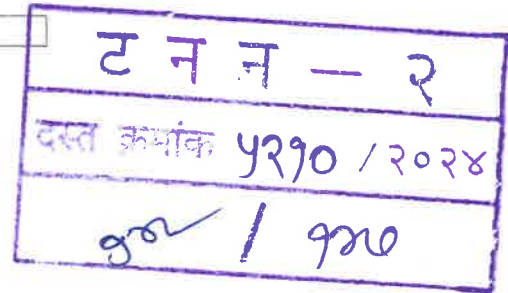 ट न न — २
दस्त क्रमांक ५२१० / २०२४
/